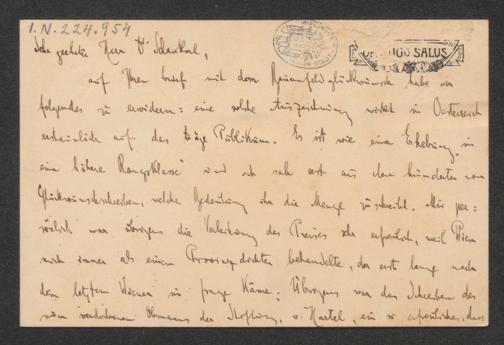 I.N. 224.954
DR HUGO SALUS
Sehr geehrter Herr Dr Schaukal,
auf Ihren Brief mit dem Bauernfeldglückwunsch habe
folgendes zu erwidern: eine solche Auszeichnung wirkt in Oesterreich
erstaunlich auf das träge Publikum. Es ist wie eine Erhebung „in
eine höhere Rangsklasse“ und ich sah erst aus den hunderten von
Glückwunschschreiben, welche Bedeutung ihr die Menge zuschreibt. Mir per=
sönlich war übrigens die Verleihung des Preises sehr erfreulich, weil Wien
mich immer als einen Provinzdichter behandelte, der erst lange nach
dem letzten Wiener in Frage käme. Übrigens war das Schreiben des
nun verstorbenen Obmanns der Stiftung, v. Hartel, ein so erfreuliches, dass